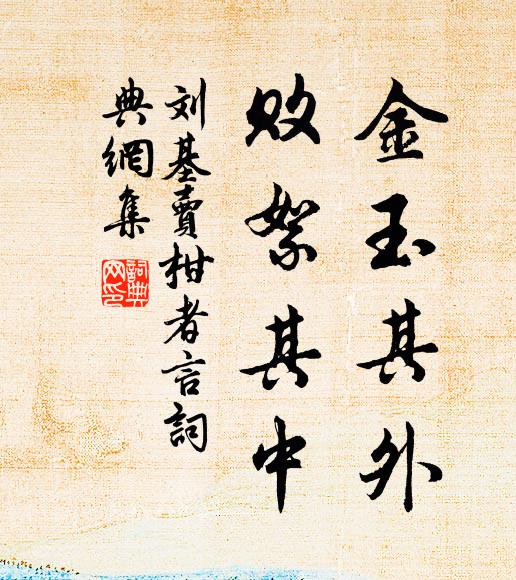 金玉其外
败絮其中
刘基賣柑者言詞
典網集
詞典
网印